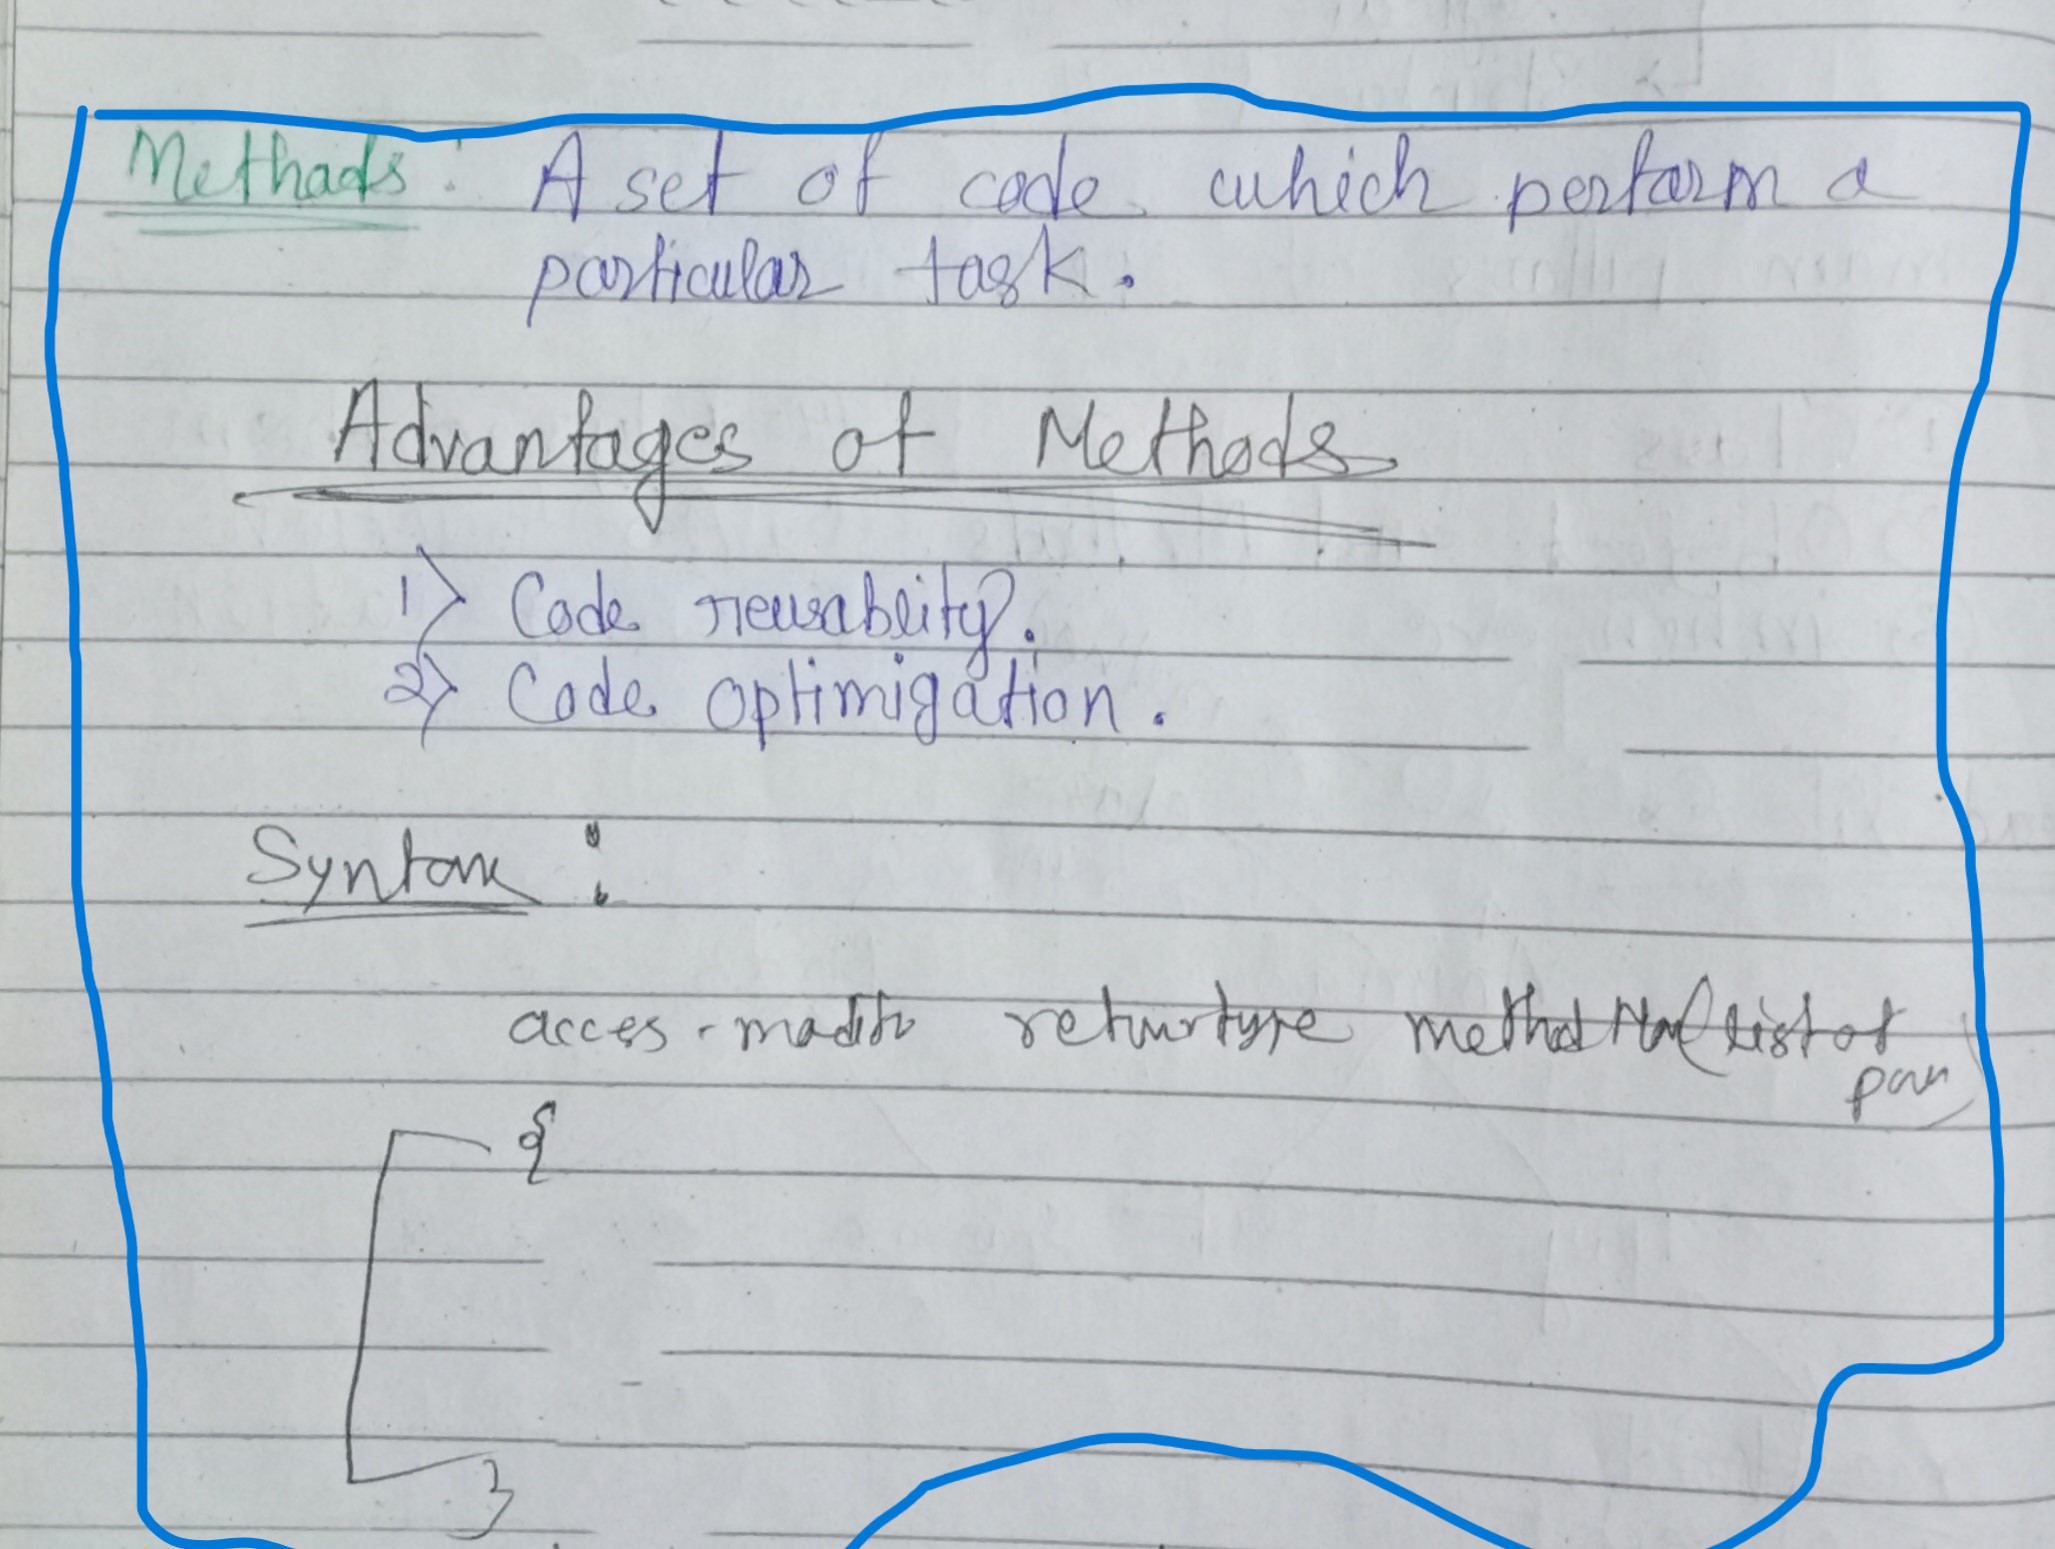 Methods : A set of code which perform a
particular task.
Advantages of Methods
1) Code reusablity.
2) Code optimization.
Syntax :
acces-modif returtype method Nam( list of
par )
{
}